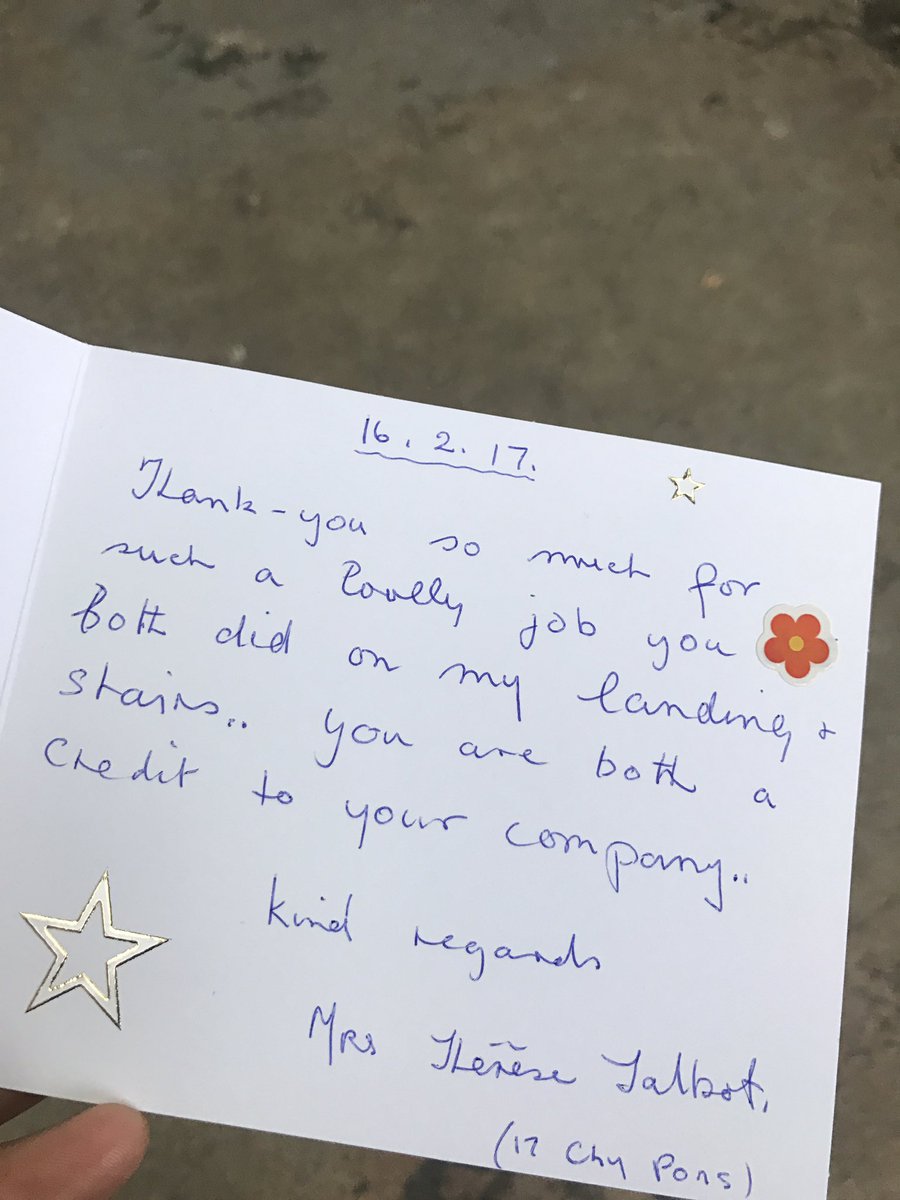 16.2.17.
Thank-you so much for
such a lovely job you
both did on my landing &
stairs.. you are both a
credit to your company..
kind regards
Mrs Thérèse Talbot.
(17 Chy Pons)